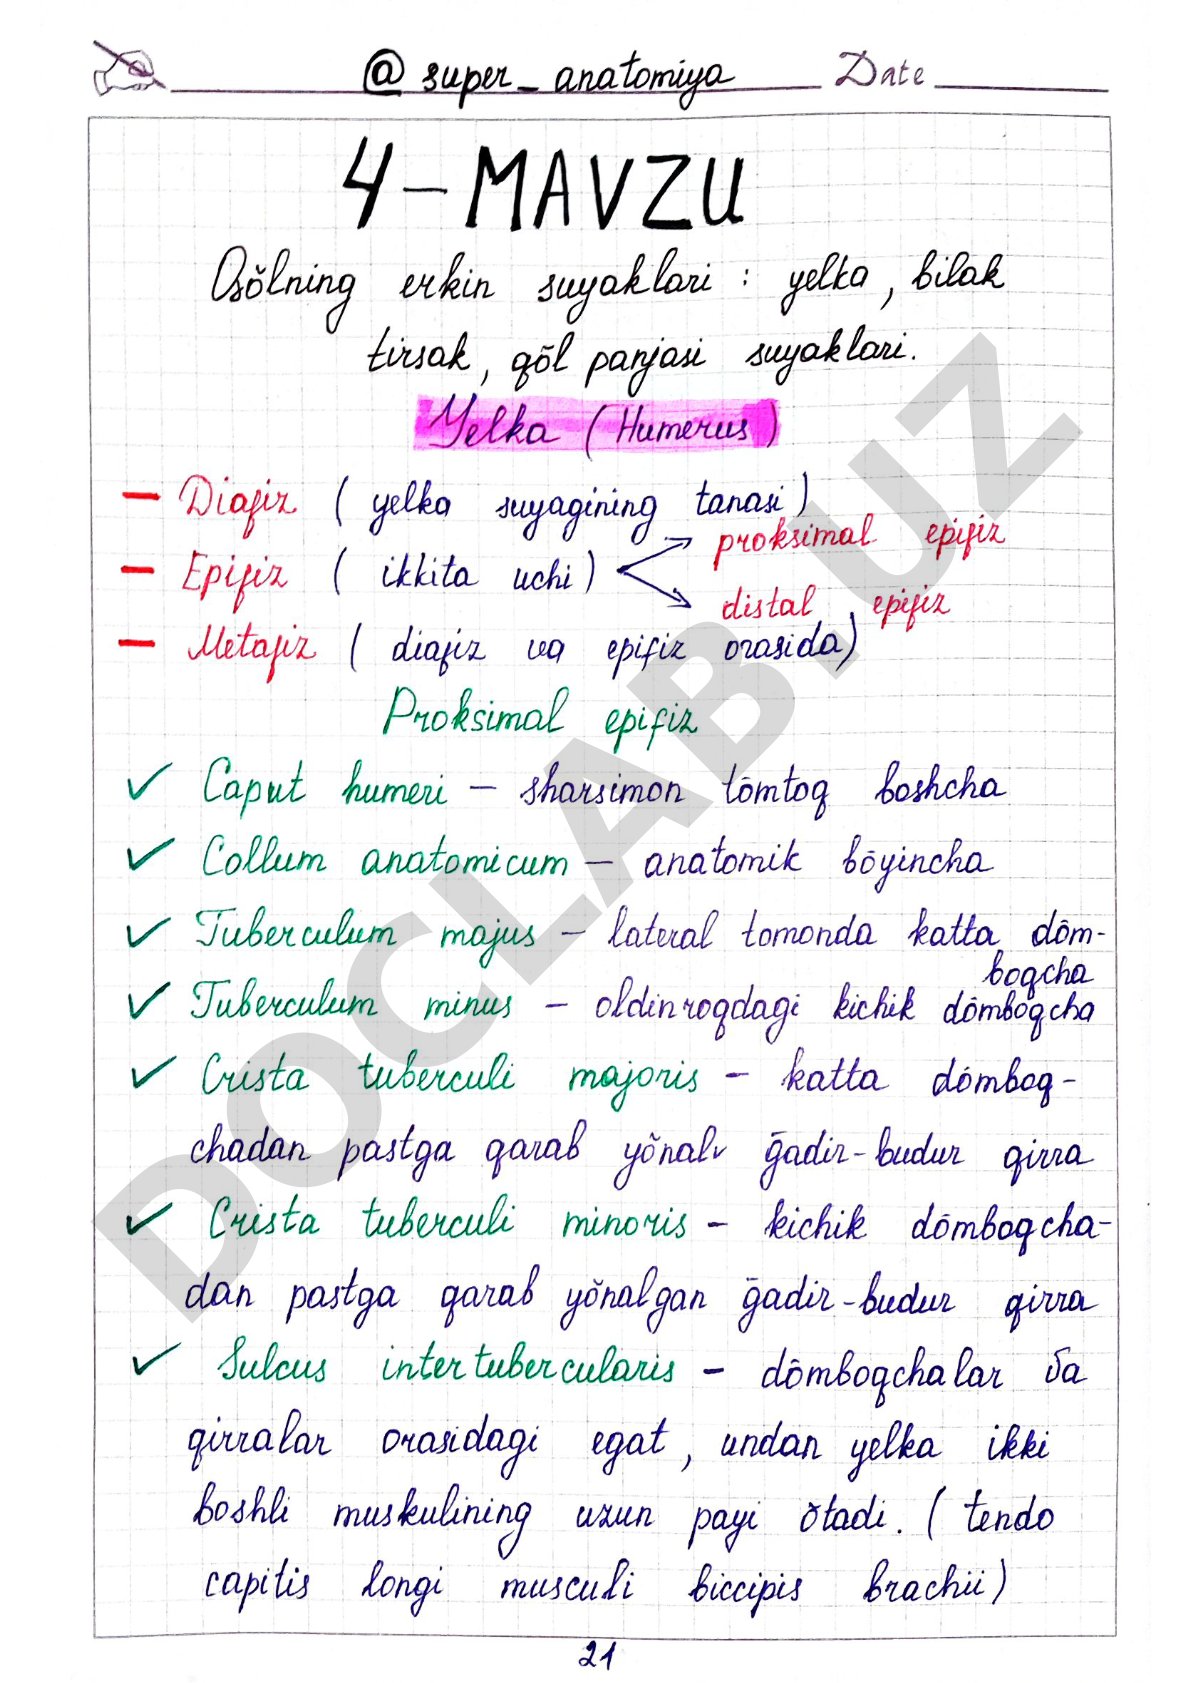 @super_anatomiya Date
4-MAVZU
Qo̮lning erkin suyaklari: yelka, bilak
tirsak, qōl panjasi suyaklari.
Yelka (Humerus)
— Diafiz (yelka suyagining tanasi)
— Epifiz (ikkita uchi) proksimal epifiz
distal epifiz
— Metafiz (diafiz va epifiz orasida)
Proksimal epifiz
✓ Caput humeri – sharsimon tōmtoq boshcha
✓ Collum anatomicum – anatomik bōyincha
✓ Tuberculum majus – lateral tomonda katta dōm-
boqcha
✓ Tuberculum minus – oldinroqdagi kichik dōmboqcha
✓ Crista tuberculi majoris – katta dōmboq-
chadan pastga qarab yŏnalv ḡadir-budur qirra
✓ Crista tuberculi minoris – kichik dōmboqcha-
dan pastga qarab yŏnalgan ḡadir-budur qirra
✓ Sulcus intertubercularis – dōmboqchalar va
qirralar orasidagi egat, undan yelka ikki
boshli muskulining uzun payi ŏtadi. (tendo
capitis longi musculi biccipis brachii)
21
DOCLAB.UZ